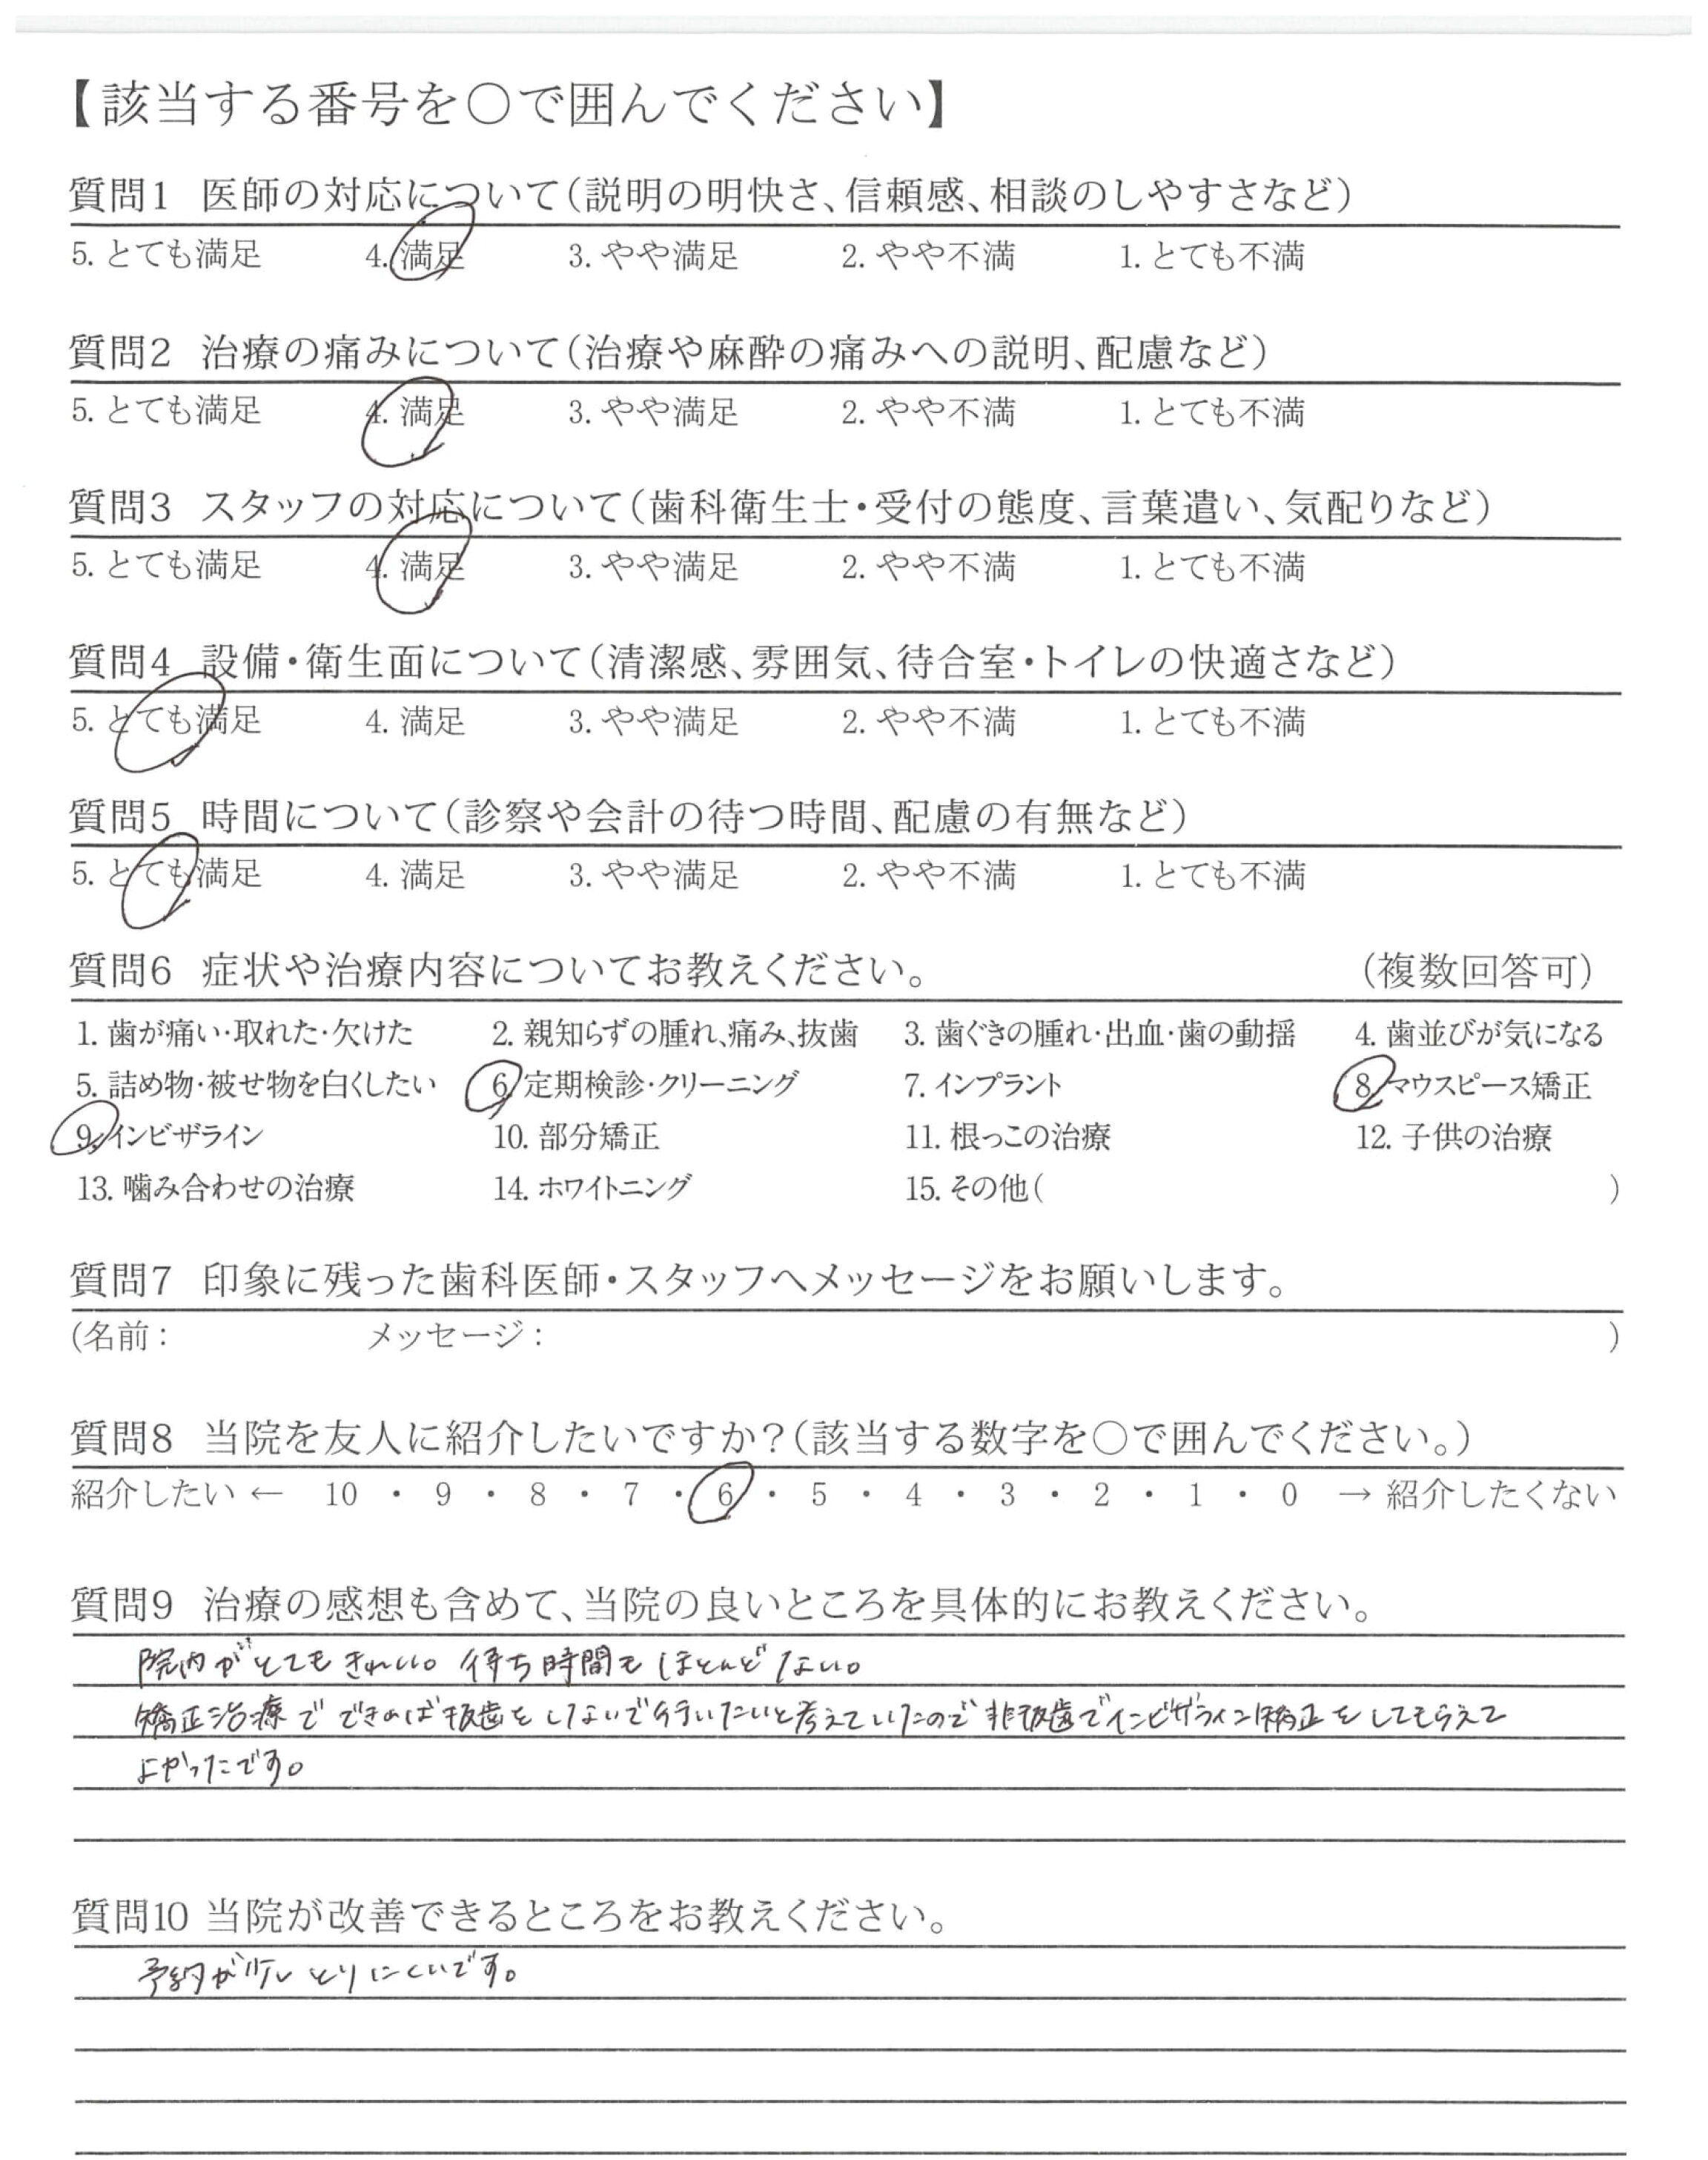 【該当する番号を○で囲んでください】
質問1 医師の対応について(説明の明快さ、信頼感、相談のしやすさなど)
5. とても満足 4. 満足 3. やや満足 2. やや不満 1. とても不満
質問2 治療の痛みについて(治療や麻酔の痛みへの説明、配慮など)
5. とても満足 4. 満足 3. やや満足 2. やや不満 1. とても不満
質問3 スタッフの対応について(歯科衛生士・受付の態度、言葉遣い、気配りなど)
5. とても満足 4. 満足 3. やや満足 2. やや不満 1. とても不満
質問4 設備・衛生面について(清潔感、雰囲気、待合室・トイレの快適さなど)
5. とても満足 4. 満足 3. やや満足 2. やや不満 1. とても不満
質問5 時間について(診察や会計の待つ時間、配慮の有無など)
5. とても満足 4. 満足 3. やや満足 2. やや不満 1. とても不満
質問6 症状や治療内容についてお教えください。 (複数回答可)
1. 歯が痛い・取れた・欠けた 2. 親知らずの腫れ、痛み、抜歯 3. 歯ぐきの腫れ・出血・歯の動揺 4. 歯並びが気になる
5. 詰め物・被せ物を白くしたい 6. 定期検診・クリーニング 7. インプラント 8. マウスピース矯正
9. インビザライン 10. 部分矯正 11. 根っこの治療 12. 子供の治療
13. 噛み合わせの治療 14. ホワイトニング 15. その他( )
質問7 印象に残った歯科医師・スタッフへメッセージをお願いします。
(名前: メッセージ: )
質問8 当院を友人に紹介したいですか?(該当する数字を○で囲んでください。)
紹介したい ← 10 ・ 9 ・ 8 ・ 7 ・ 6 ・ 5 ・ 4 ・ 3 ・ 2 ・ 1 ・ 0 → 紹介したくない
質問9 治療の感想も含めて、当院の良いところを具体的にお教えください。
院内がとてもきれい。待ち時間もほとんどない。
矯正治療でできれば抜歯をしないで行いたいと考えていたので非抜歯でインビザライン矯正をしてもらえて
よかったです。
質問10 当院が改善できるところをお教えください。
予約が少しとりにくいです。